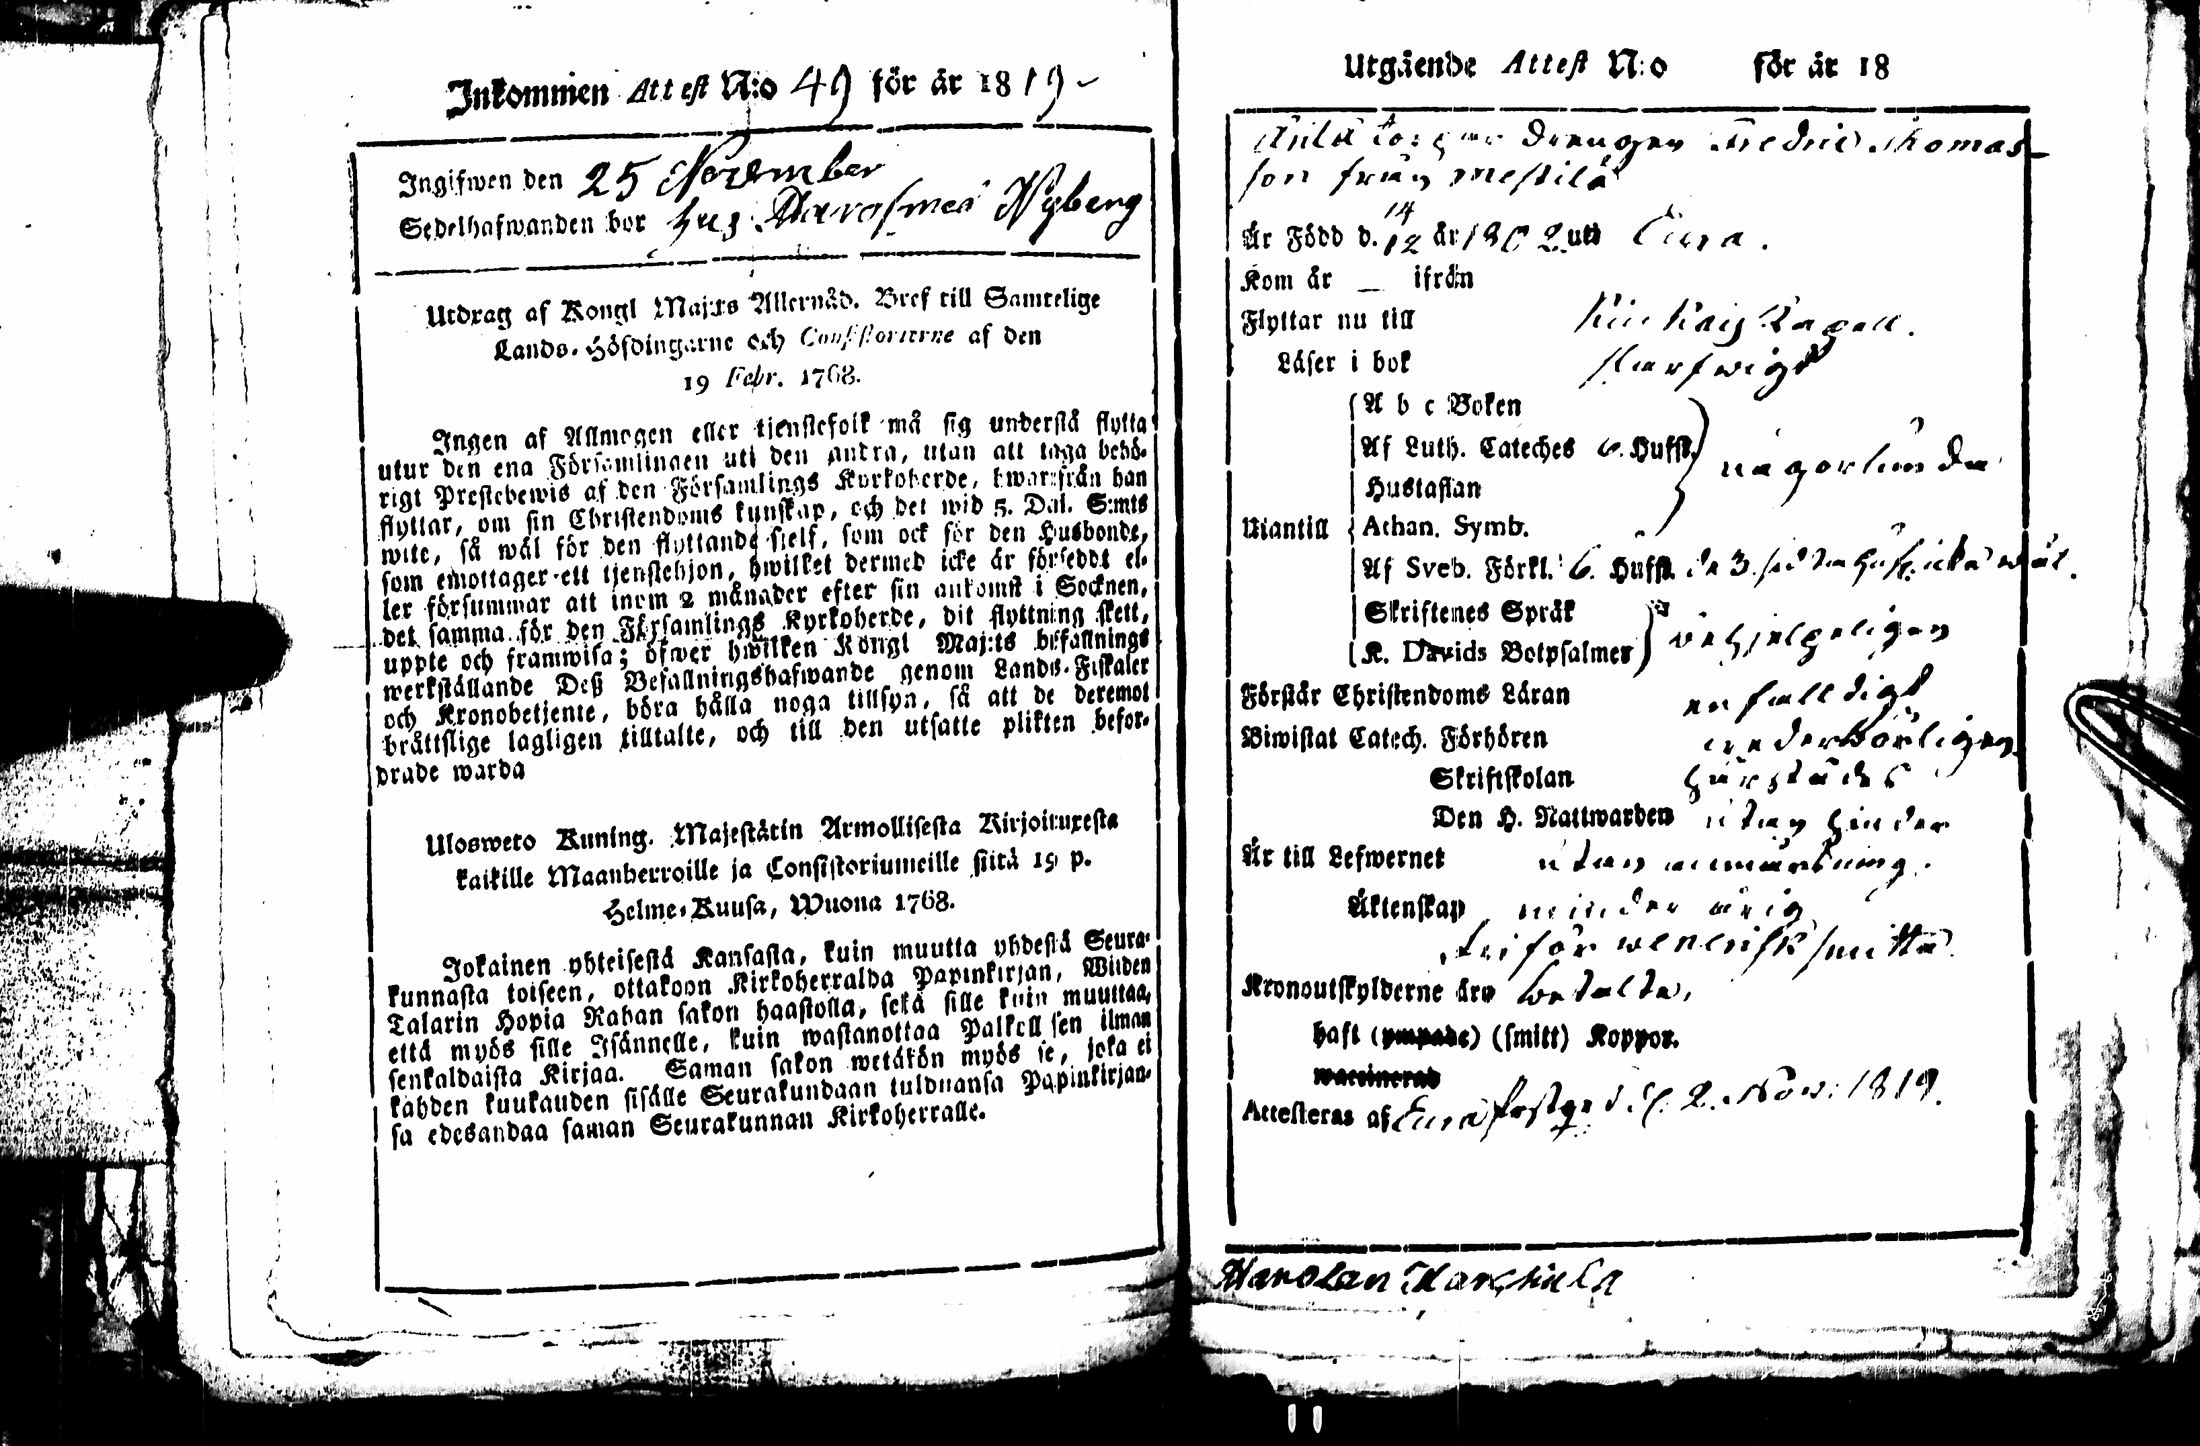 Inkommen Attest N:o 49 för år 1819
Ingifwen den 25 November
Sedelhafwanden bor hus Nyberg
Utdrag af Kongl Maj:ts Allernåd. Bref till Samtelige
Lands-Höfdingarne och Consistorierne af den
19 Febr. 1768.
Ingen af Allmogen eller tjenstefolk må sig understå flytta
utur den ena Församlingen uti den andra, utan att taga behö-
rigt Prestebewis af den Församlings Kyrkoherde, hwarifrån han
flyttar, om sin Christendoms kunskap, och det wid 5. Dal. S:mts
wite, så wäl för den flyttande sielf, som ock för den Husbonde,
som emottager ett tjenstehjon, hwilket dermed icke är förseddt el-
ler försummar att inom 2 månader efter sin ankomst i Socknen,
det samma för den Församlings Kyrkoherde, dit flyttning skett,
uppte och framwisa; öfwer hwilken Kongl Maj:ts befallnings
werkställande Deß Befallningshafwande genom Lands-Fiskaler
och Kronobetjente, böra hålla noga tillsyn, så att de deremot
bråttslige lagligen tilltalte, och till den utsatte plikten befor-
drade warda
Ulosweto Kuning. Majestätin Armollisesta Kirjoituxesta
kaikille Maanherroille ja Consistoriumeille siitä 19 p.
Helme-Kuusa, Wuona 1768.
Jokainen yhteisestä Kansasta, kuin muutta yhdestä Seura-
kunnasta toiseen, ottakoon Kirkoherralda Papinkirjan, Wiiden
Talarin Hopia Rahan sakon haastolla, sekä sille kuin muuttaa,
että myös sille Isännelle, kuin wastanottaa Palkollisen ilman
senkaldaista Kirjaa. Saman sakon wetäkön myös se, joka ei
kahden kuukauden sisälle Seurakundaan tulduansa Papinkirjan-
sa edesandaa saman Seurakunnan Kirkoherralle.
Utgående Attest N:o för år 18
drengen Fredric Thomas-
son från Mestilä
Är Född d. 14/12 år 1802 uti Eura.
Kom år _ ifrån
Flyttar nu till Kapell.
Läser i bok
A b c Boken
Af Luth. Cateches 6. Hufst.
Hustaflan någorlunda
Utantill Athan. Symb.
Af Sveb. Förkl. 6. Hufst. de 3. sidsta icke wäl.
Skriftenes Språk
K. Davids Botpsalmer behjelpeligen
Förstår Christendoms Läran enfalldigt
Biwistat Catech. Förhören wederbörligen
Skriftskolan härstädes
Den H. Nattwarden utan hinder
Är till Lefwernet utan anmärkning.
Äktenskap minder årig
fri för wenerisk smitta
Kronoutskylderne äro betalte,
haft (ympade) (smitt) Koppor.
waccinerad
Attesteras af Eura Prestgård d. 2. Nov: 1819.